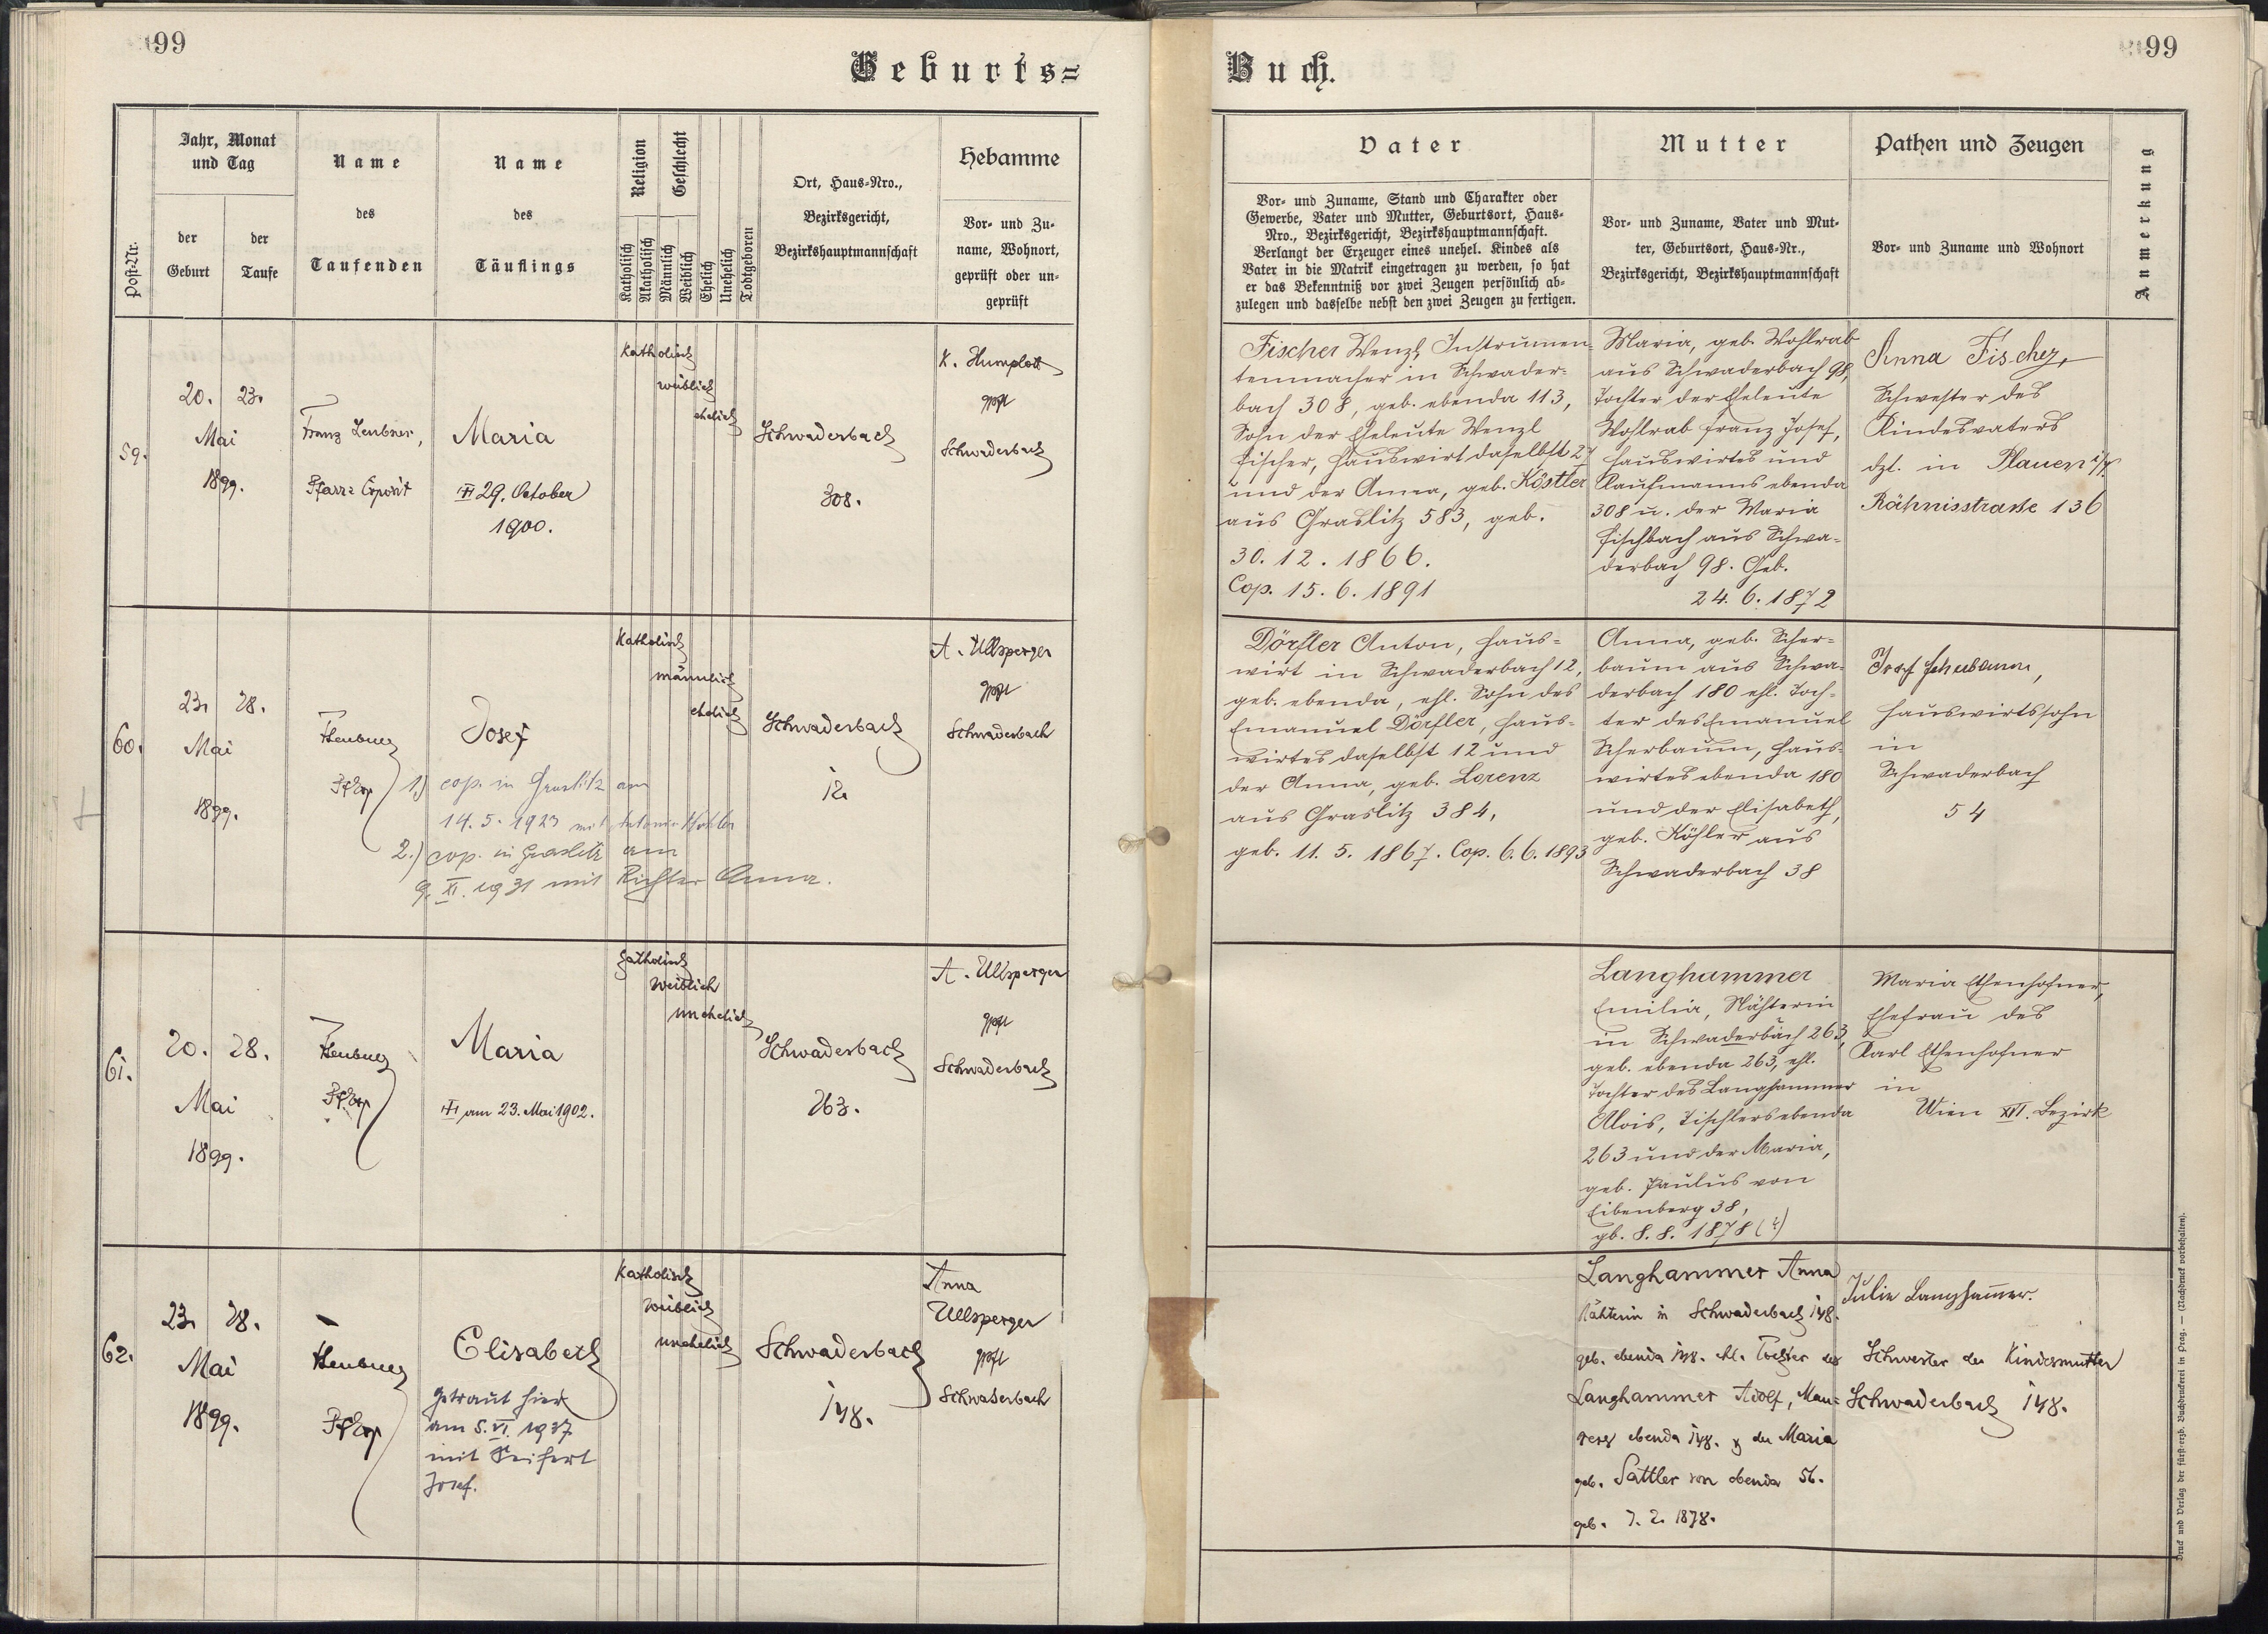 99
Geburts=
Jahr, Monat
und Tag
Name
des
Taufenden
Name
des
Täuflings
Religion
Geschlecht
Ort, Haus-Nro.,
Bezirksgericht,
Bezirkshauptmannschaft
Hebamme
Post-Nr.
der
Geburt
der
Taufe
Katholisch
Akatholisch
Männlich
Weiblich
Ehelich
Unehelich
Todtgeboren
Vor- und Zu-
name, Wohnort,
geprüft oder un-
geprüft
59.
20. 23.
Mai
1899.
Franz Leubner,
Pfarr= Exposit
Maria
29. October
1900.
Katholisch
weiblich
ehelich
Schwaderbach
308.
K. Humplott
gpft
Schwaderbach
60.
23. 28.
Mai
1899.
Josef
1.) cop. in Graslitz am
14. 5. 1923 mit
2.) cop. in Graslitz am
9. XI. 1931 mit Richter Anna.
Katholisch
männlich
ehelich
Schwaderbach
12.
A. Ullsperger
gpft
Schwaderbach
61.
20. 28.
Mai
1899.
Maria
am 23. Mai 1902.
Katholisch
weiblich
unehelich
Schwaderbach
263.
A. Ullsperger
gpft
Schwaderbach
62.
23. 28.
Mai
1899.
Elisabeth
Getraut hier
am 5. VI. 1937
mit Seifert
Josef.
Katholisch
weiblich
unehelich
Schwaderbach
148.
Anna
Ullsperger
gpft
Schwaderbach
Buch.
99
Vater
Vor- und Zuname, Stand und Charakter oder
Gewerbe, Vater und Mutter, Geburtsort, Haus-
Nro., Bezirksgericht, Bezirkshauptmannschaft.
Verlangt der Erzeuger eines unehel. Kindes als
Vater in die Matrik eingetragen zu werden, so hat
er das Bekenntniß vor zwei Zeugen persönlich ab-
zulegen und dasselbe nebst den zwei Zeugen zu fertigen.
Mutter
Vor- und Zuname, Vater und Mut-
ter, Geburtsort, Haus-Nr.,
Bezirksgericht, Bezirkshauptmannschaft
Pathen und Zeugen
Vor- und Zuname und Wohnort
Anmerkung
Fischer Wenzl, Instrumen-
tenmacher in Schwader-
bach 308, geb. ebenda 113,
Sohn der Eheleute Wenzl
Fischer, Hauswirt daselbst 27
und der Anna, geb. Köstler
aus Graslitz 583, geb.
30. 12. 1866.
Cop. 15. 6. 1891
Maria, geb. Wohlrab
aus Schwaderbach 98,
Tochter der Eheleute
Wohlrab Franz Josef,
Hauswirtes und
Kaufmanns ebenda
308 u. der Maria
Fischbach aus Schwa-
derbach 98. Geb.
24. 6. 1872
Anna Fischer,
Schwester des
Kindesvaters
dzt. in Plauen i/V.
Rähnisstrasse 136
Dörfler Anton, Haus-
wirt in Schwaderbach 12,
geb. ebenda, ehl. Sohn des
Emanuel Dörfler, Haus-
wirtes daselbst 12 und
der Anna, geb. Lorenz
aus Graslitz 384,
geb. 11. 5. 1867. Cop. 6. 6. 1893
Anna, geb. Scher-
baum aus Schwa-
derbach 180 ehl. Toch-
ter des Emanuel
Scherbaum, Haus-
wirtes ebenda 180
und der Elisabeth,
geb. Köhler aus
Schwaderbach 38
Josef
Hauswirtssohn
in
Schwaderbach
54
Langhammer
Emilia, Nähterin
in Schwaderbach 263,
geb. ebenda 263, ehl.
Tochter des Langhammer
Alois, Tischlers ebenda
263 und der Maria,
geb. Paulus von
Eibenberg 38,
gb. 8. 8. 1878
Maria Ethenhofner,
Ehefrau des
Karl Ethenhofner
in
Wien XVI. Bezirk
Langhammer Anna
Nähterin in Schwaderbach 148.
geb. ebenda 148. ehl. Tochter des
Langhammer Adolf, Mau=
rers ebenda 148. & der Maria
geb. Sattler von ebenda 56.
geb. 7. 2. 1878.
Julie Langham̄er.
Schwester der Kindesmutter
Schwaderbach 148.
Druck und Verlag der fürst-erzb. Buchdruckerei in Prag. — (Nachdruck vorbehalten).